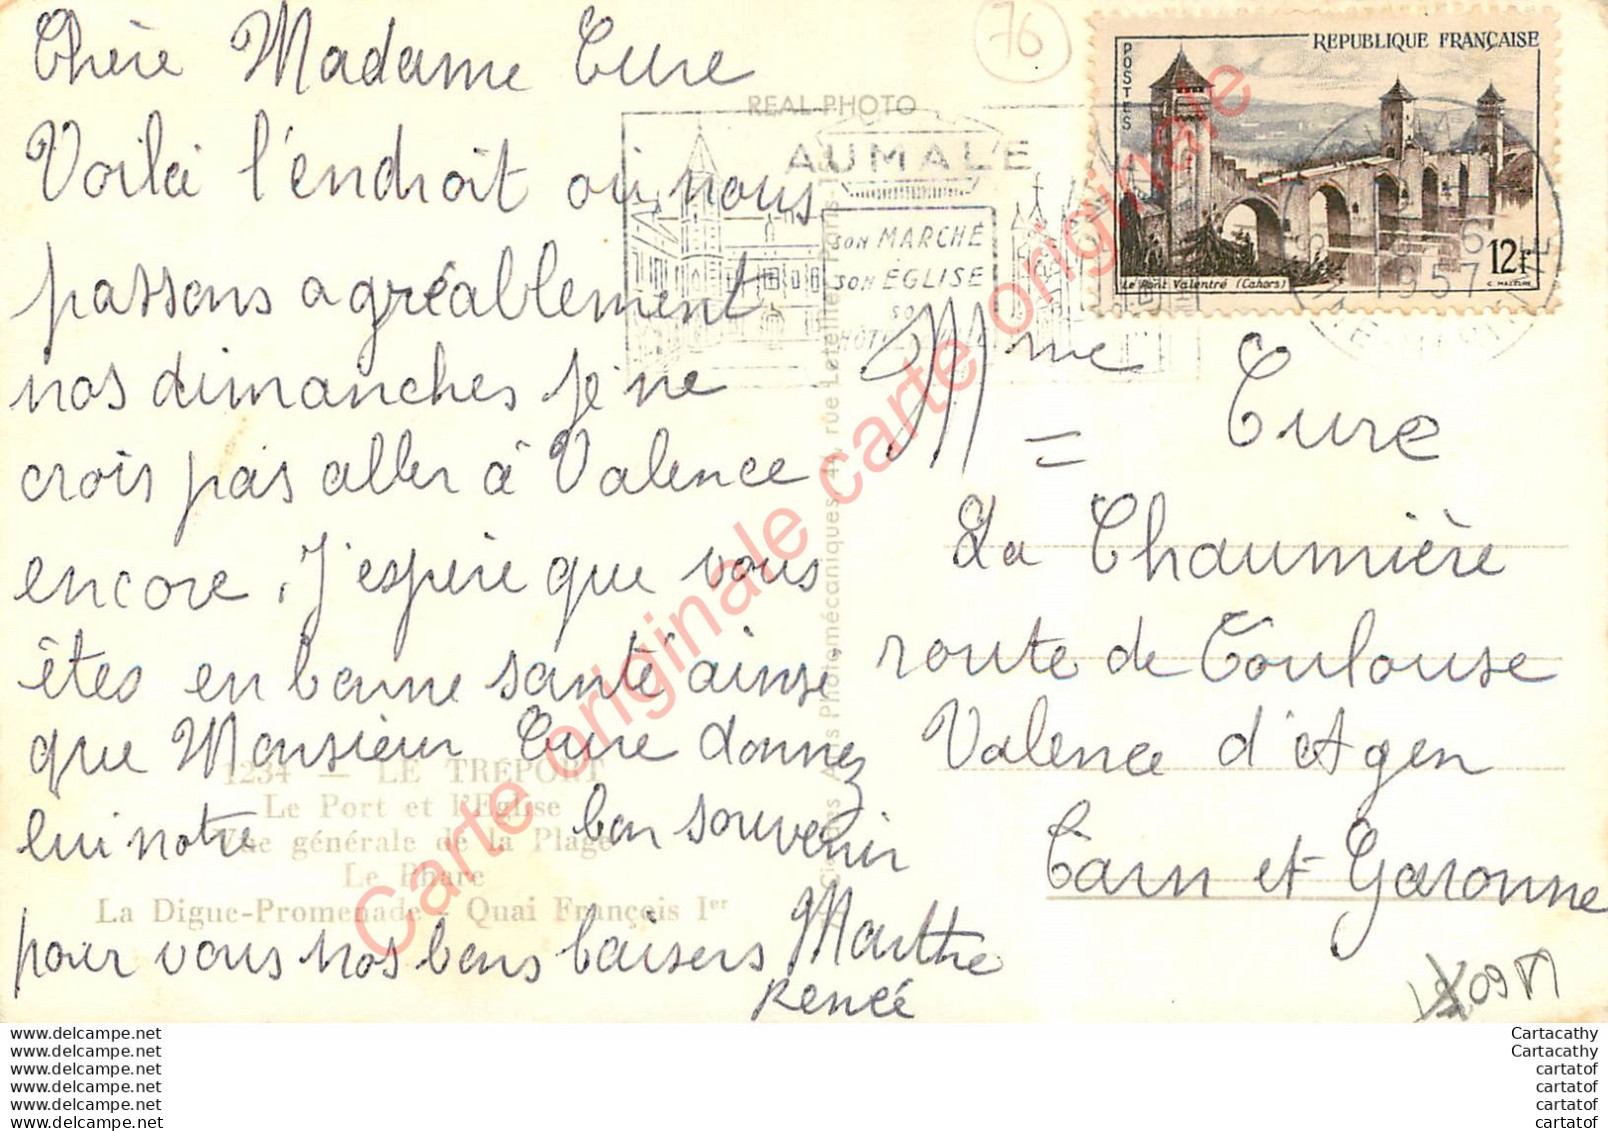 Chère Madame Cure
Voilà l'endroit où nous
passons agréablement
nos dimanches je ne
crois pas aller à Valence
encore. J'espère que vous
êtes en bonne santé ainsi
que Monsieur Cure donnez
lui notre bon souvenir
pour vous nos bons baisers Marthe
Renée
76
REAL-PHOTO
AUMALE
SON MARCHÉ
SON ÉGLISE
REPUBLIQUE FRANÇAISE
POSTES
Le Pont Valentré (Cahors)
12F
1957
Mme Cure
La Chaumière
route de Toulouse
Valence d'Agen
Tarn et Garonne
1234 - LE TRÉPORT
Le Port et l'Eglise
Vue générale de la Plage
Le Phare
La Digue-Promenade - Quai François Ier
Carte originale carte originale
www.delcampe.net
www.delcampe.net
www.delcampe.net
www.delcampe.net
www.delcampe.net
www.delcampe.net
Cartacathy
Cartacathy
cartatof
cartatof
cartatof
cartatof